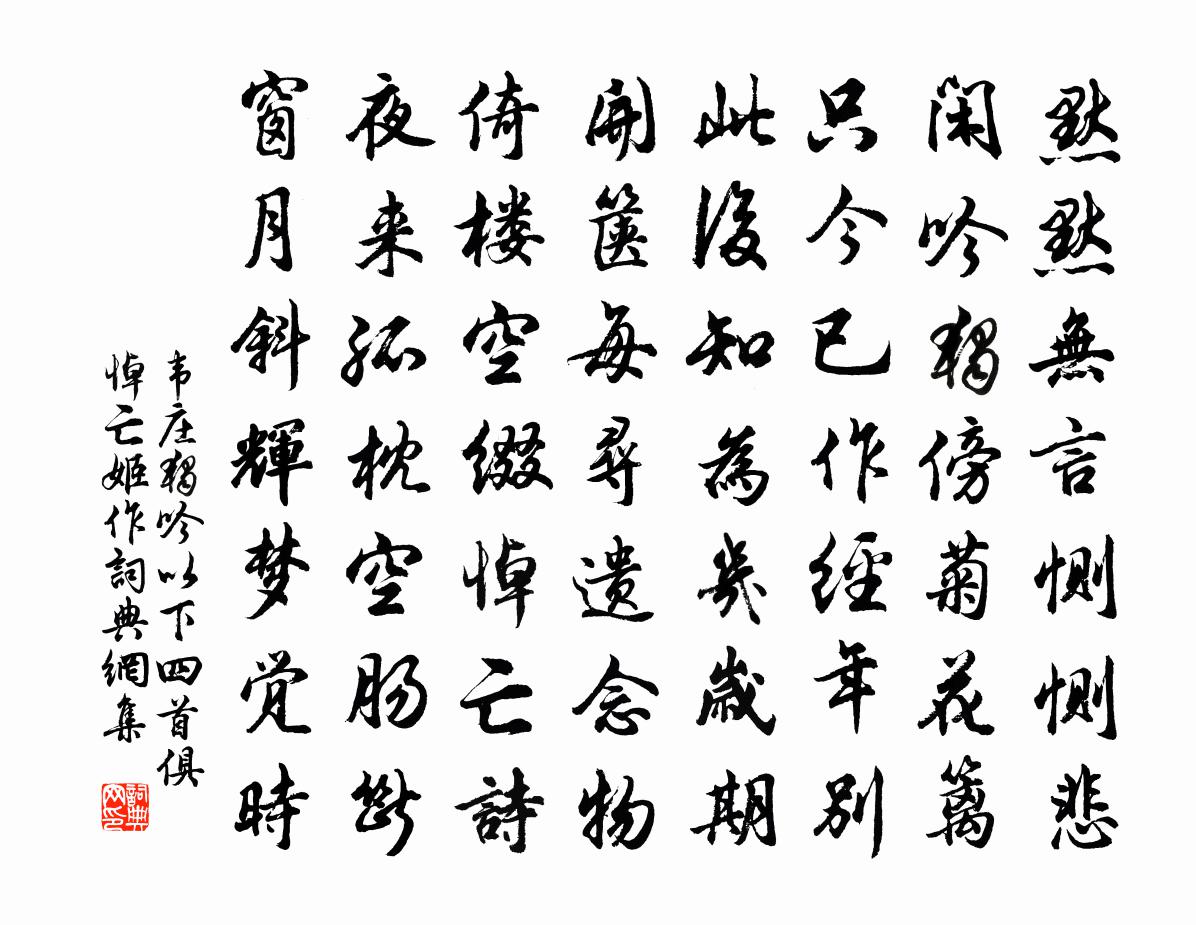 黙黙無言惻惻悲
閑吟獨傍菊花籬
只今已作經年別
此後知為幾歲期
開篋每尋遺念物
倚楼空綴悼亡詩
夜来孤枕空腸斷
窗月斜輝梦覚時
韦庄獨吟以下四首俱
悼亡姬作詞典網集
詞典网印